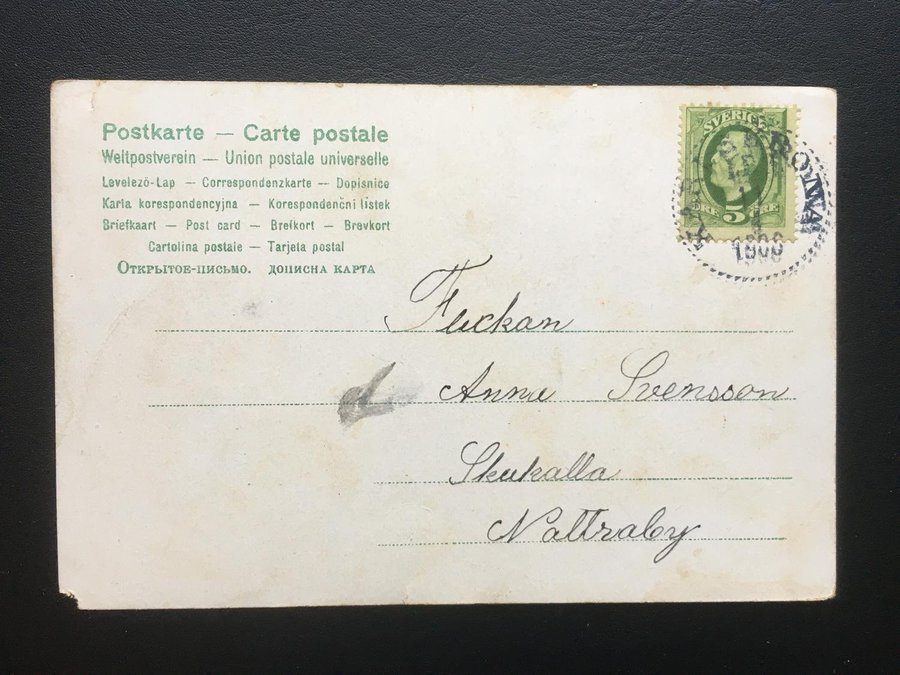 Postkarte — Carte postale
Weltpostverein — Union postale universelle
Levelező-Lap — Correspondenzkarte — Dopisnice
Karta korespondencyjna — Korespondenční lístek
Briefkaart — Post card — Brefkort — Brevkort
Cartolina postale — Tarjeta postal
Открытое-письмо. дописна карта
SVERIGE
5
ÖRE ÖRE
1906
Fuckan
Anna Svensson
Skukalla
Nattraby